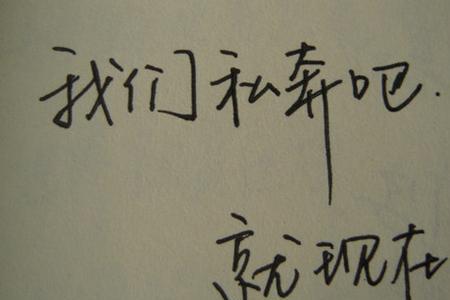 我们私奔吧.
就现在